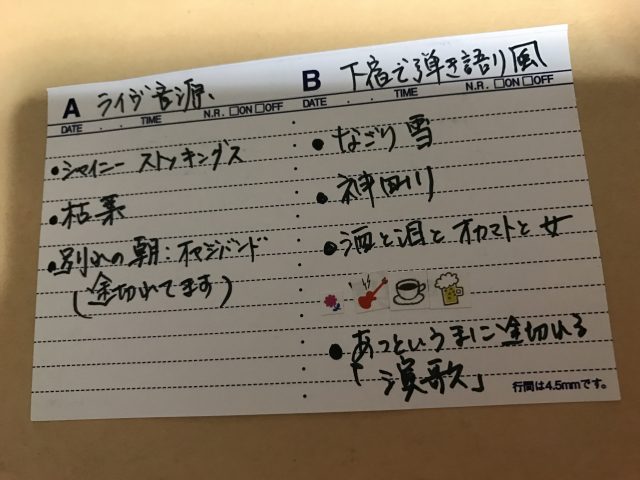 A ライヴ音源、
DATE . . TIME N.R. □ON□OFF
・シャイニー ストッキングス
・枯葉
・別れの朝:オヤジバンド
(途切れてます)
B 下宿で弾き語り風
DATE . . TIME N.R. □ON□OFF
・なごり雪
・神田川
・酒と泪とオカマトと女
・あっというまに途切れる
「演歌」
行間は4.5mmです。